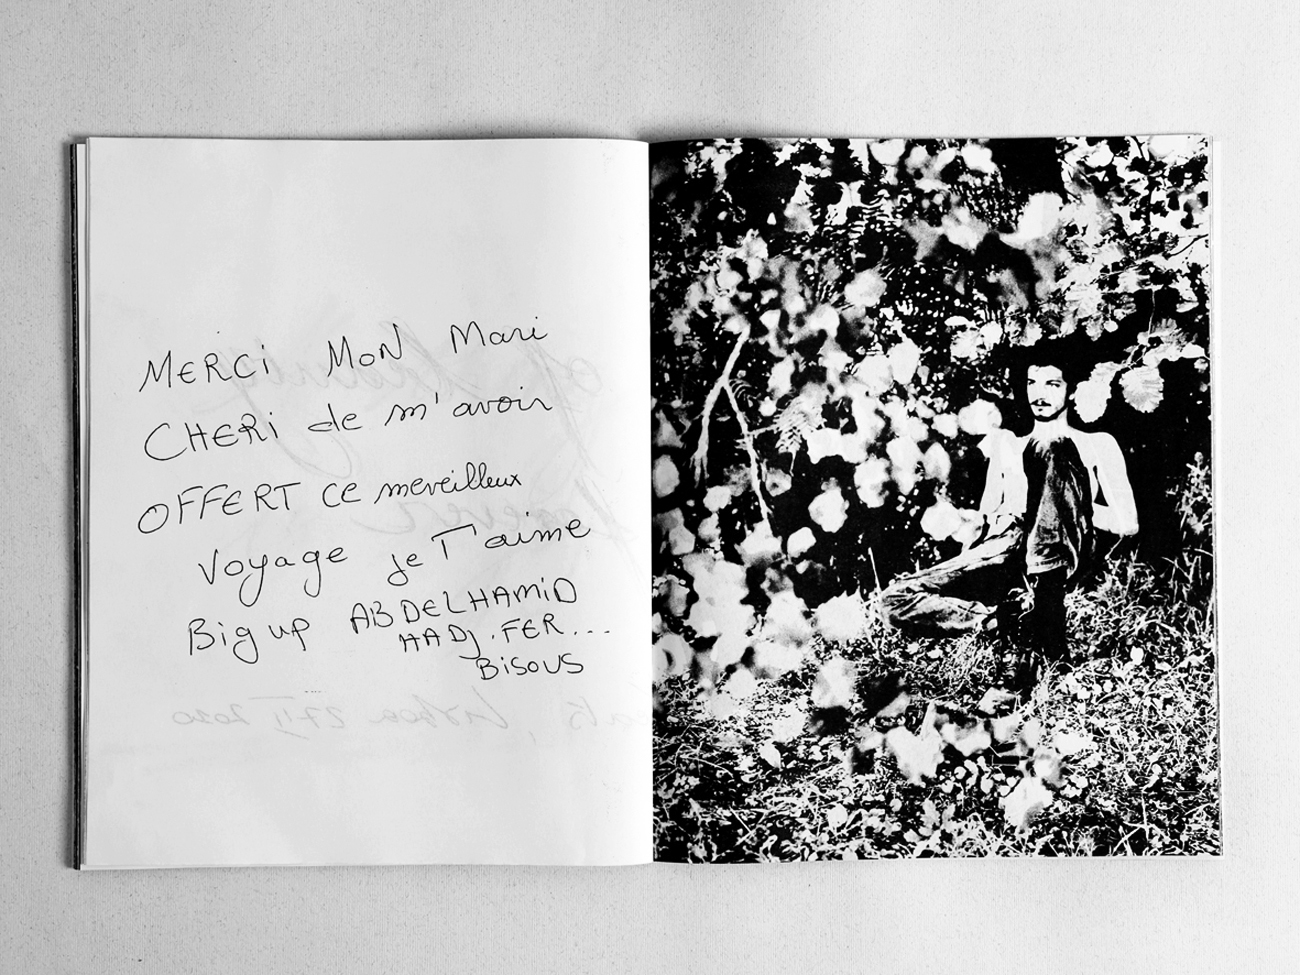 MERCi MON Mari
CHERi de m'avoir
OFFERT CE merveilleux
Voyage je T'aime
Big up ABDELHAMiD
HADJ.FER...
BiSOUS